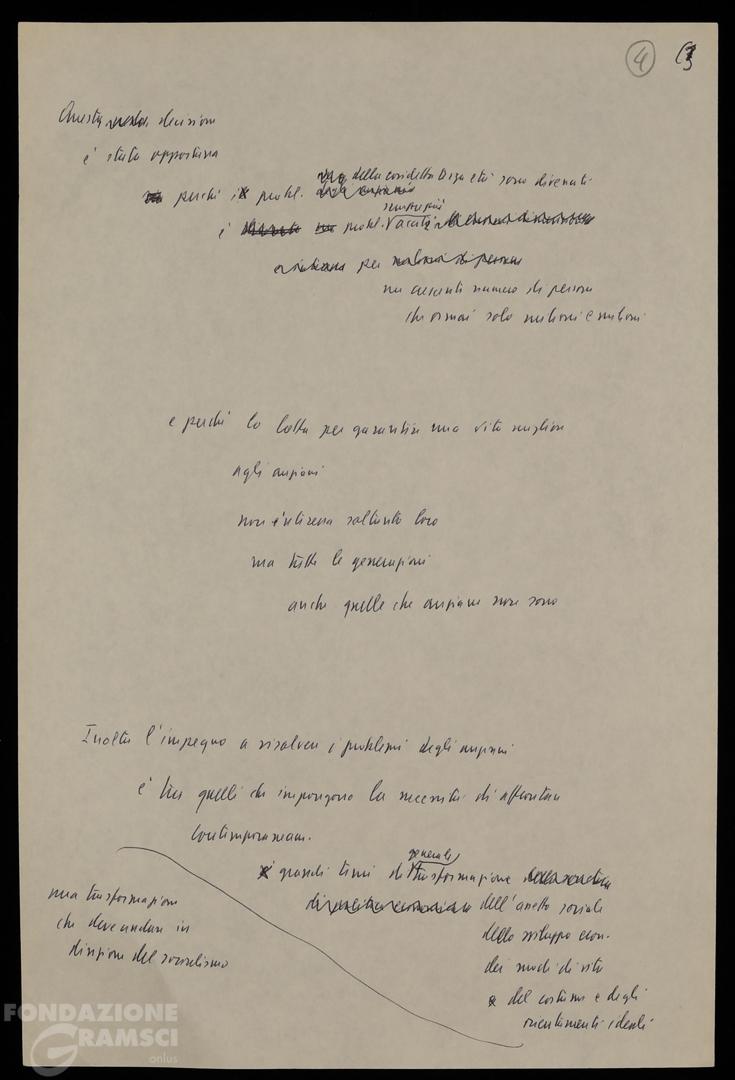 4 3
Questa decisione
è stata opportuna
della cosidetta terza età sono divenuti
perché i probl.
sempre più
probl. acuti
per
un crescente numero di persone
che ormai solo milioni e milioni
e perché la lotta per garantire una vita migliore
agli anziani
non interessa soltanto loro
ma tutte le generazioni
anche quelle che anziane non sono
Inoltre l'impegno a risolvere i problemi degli anziani
è tra quelli che impongono la necessità di affrontare
contemporaneam.
generale
grandi temi di trasformazione
dell'assetto sociale
dello sviluppo econ.
dei modi di vita
del costume e degli
orientamenti ideali
una trasformazione
che deve andare in
direzione del socialismo
FONDAZIONE
GRAMSCI
onlus